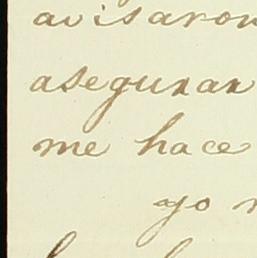 avisaron
asegurar
me hace
yo